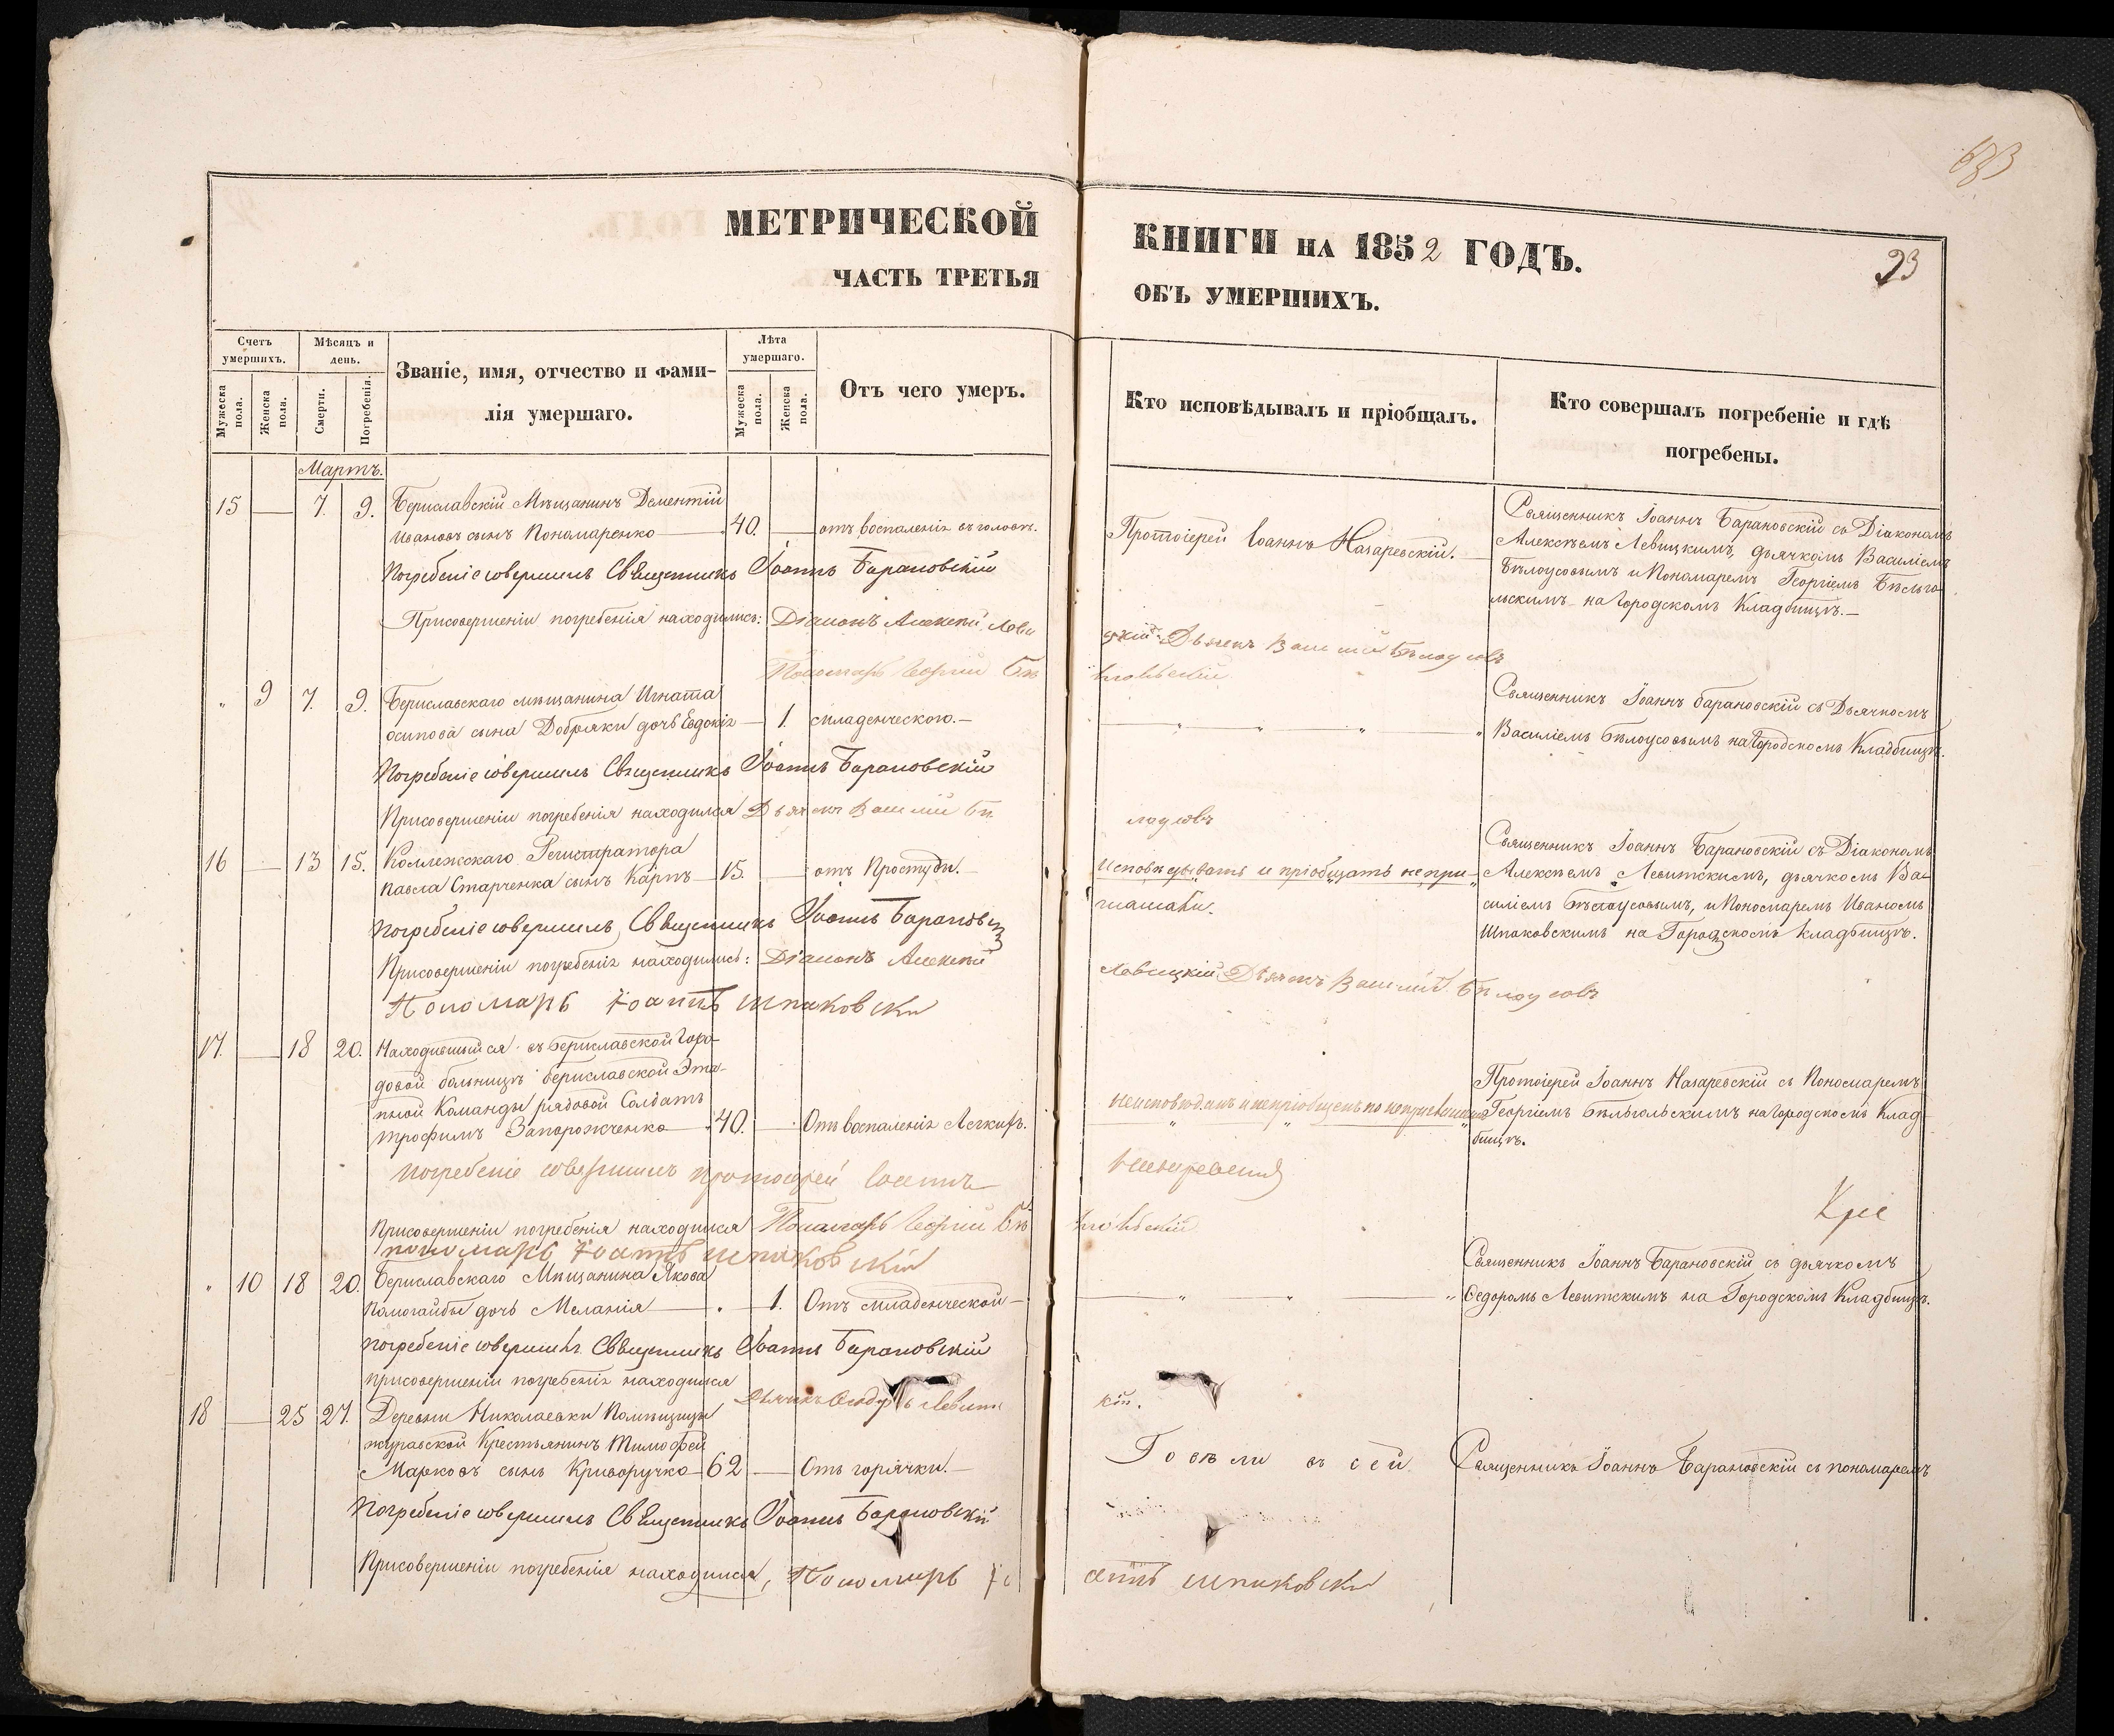 633
МЕТРИЧЕСКОЙ КНИГИ НА 1852 ГОДЪ.
93
ЧАСТЬ ТРЕТЬЯ ОБЪ УМЕРШИХЪ.
Счетъ умершихъ.
Мѣсяцъ и день.
Званіе, имя, отчество и фами-
лія умершаго.
Лѣта умершаго.
Отъ чего умеръ.
Кто исповѣдывалъ и пріобщалъ.
Кто совершалъ погребеніе и гдѣ
погребены.
Мужеска пола.
Женска пола.
Смерти.
Погребенія.
Мужеска пола.
Женска пола.
Мартъ.
15 — 7. 9. Бериславскій Мѣщанинъ Дементій
Ивановъ сынъ Пономаренко — 40. — отъ воспаленія въ головѣ.
Протоіерей Іоаннъ Назаревскій.
Священникъ Іоаннъ Барановскій съ Діакономъ
Алексѣемъ Левицкимъ, дьячкомъ Василіемъ
Бѣлоусовымъ и Пономаремъ Георгіемъ Бѣльго
льскимъ на Городскомъ Кладбищѣ.—
Погребеніе совершилъ Священникъ Іоаннъ Барановскій
При совершеніи погребенія находились: Діаконъ Алексѣй Леви
цкій Дьячекъ Василій Бѣлоусовъ
Пономарь Георгій Бѣ
льгольскій
" 9 7. 9. Бериславскаго мѣщанина Игната
осипова сына Добряки дочь Евдокія — 1. младенческою.—
Священникъ Іоаннъ барановскій съ Дьячкомъ
Василіемъ Бѣлоусовымъ на Городскомъ Кладбищѣ.
Погребеніе совершилъ Священникъ Іоаннъ Барановскій
При совершеніи погребенія находился Дьячекъ Василій Бѣ
лоусовъ
16 — 13 15. Коллежскаго Регистратора
Павла Старченка сынъ Карпъ — 15. — отъ Простуды.—
Исповѣдывать и пріобщать не при
глашали.
Священникъ Іоаннъ Барановскій съ Діакономъ
Алексѣемъ Левитскимъ, дьячкомъ Ва-
силіемъ Бѣлоусовымъ, и Пономаремъ Иваномъ
Шпаковскимъ на Городскомъ кладбищѣ.
Погребеніе совершилъ Священникъ Іоаннъ Барановскій
При совершеніи погребенія находились: Діаконъ Алексѣй
Левицкій Дьячекъ Василій Бѣлоусовъ
Пономарь Іоаннъ шпаковски
17. — 18 20. Находившийся въ Бериславской Горо-
довой больницѣ бериславской Эта-
пной Команды рядовой Солдатъ
Трофимъ Запорожченко — 40. — Отъ воспаленія Легкихъ.
Неисповѣданъ и непріобщенъ по
Протоіерей Іоаннъ Назаревскій съ Пономаремъ
Георгіемъ Бѣльгольскимъ на Городскомъ Клад
бищѣ.
Погребеніе совершилъ Протоіерей Іоаннъ
Назаревскій
При совершеніи погребенія находился Пономарь Георгій Бѣ
льгольскій
Пономарь Іоаннъ шпаковскій
" 10 18 20. Бериславскаго Мѣщанина Якова
Помогайбы дочь Меланія — . — 1. Отъ младенческой —
Священникъ Іоаннъ Барановскій съ дьячкомъ
Ѳедоромъ Левитскимъ на Городскомъ Кладбищѣ.
Погребеніе совершилъ Священникъ Іоаннъ Барановскій
При совершеніи погребенія находился
Дьячекъ Ѳеодоръ Левитс
кій.
18 — 25 27. Деревни Николаевки Помѣщицы
журавской Крестьянинъ Тимофей
Марковъ сынъ Криворучко — 62 — Отъ горячки.—
Священникъ Іоаннъ Барановскій съ пономаремъ
Погребеніе совершилъ Священникъ Іоаннъ Барановскій
При совершеніи погребенія находился, Пономарь Іо
аннъ шпаковски